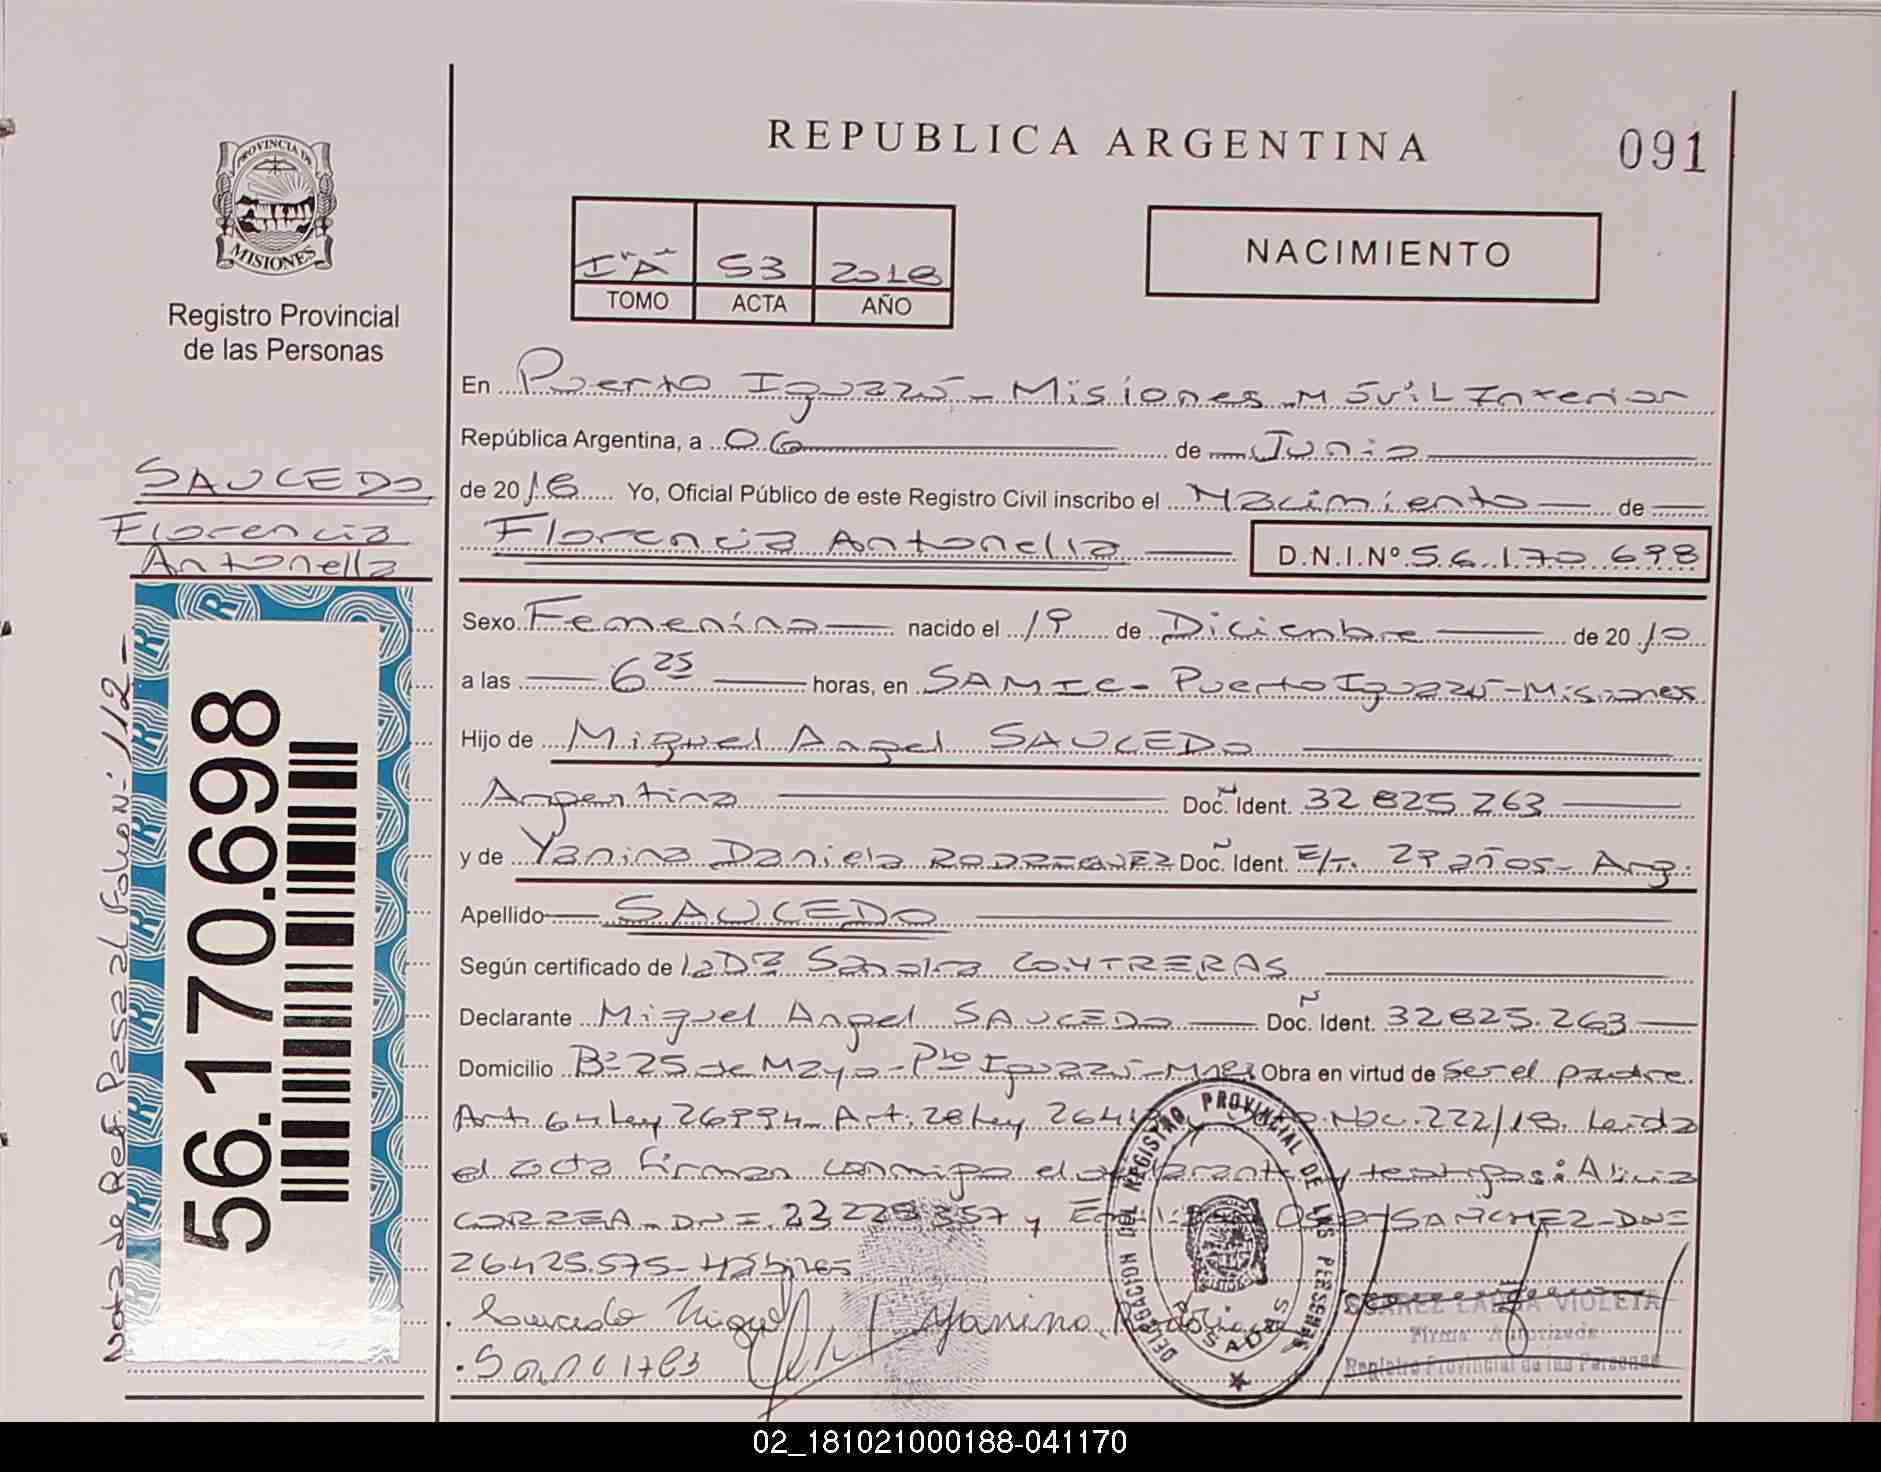 REPUBLICA ARGENTINA
091
PROVINCIA DE
MISIONES
Registro Provincial
de las Personas
I "A" 53 2018
TOMO ACTA AÑO
NACIMIENTO
En Puerto Iguazú - Misiones Móvil Interior
República Argentina, a 06 de Junio
de 2018 Yo, Oficial Público de este Registro Civil inscribo el Nacimiento de
Florencia Antonella D.N.I.Nº 56.170.698
SAUCEDO
Florencia
Antonella
Nota de Ref. Pasa al Folio N: 112-
56.170.698
Sexo Femenino nacido el 19 de Diciembre de 2010
a las 6 25 horas, en SAMIC - Puerto Iguazú - Misiones
Hijo de Miguel Angel SAUCEDO
Argentina Doc. Ident. 32825.263
y de Yanina Daniela RODRIGUEZ Doc. Ident. E/T. 29 años - Arg.
Apellido SAUCEDO
Según certificado de la Dra Sandra CONTRERAS
Declarante Miguel Angel SAUCEDO Doc. Ident. 32825.263
Domicilio Bº 25 de Mayo - Pto Iguazú - Mnes Obra en virtud de Ser el padre.
Art. 64 Ley 26994 - Art. 28 Ley 264 Nac. 222/18. Leida
el acta firman conmigo el y testigos: Alicia
CORREA - DNI. 23228357 y SANCHEZ - DNI
26425.575 - Hábiles
Saucedo Miguel Yanina Rodriguez
DELEGACION DEL REGISTRO PROVINCIAL DE LAS PERSONAS
POSADAS
SUAREZ LAURA VIOLETA
Firma Autorizada
Registro Provincial de las Personas
02_181021000188-041170